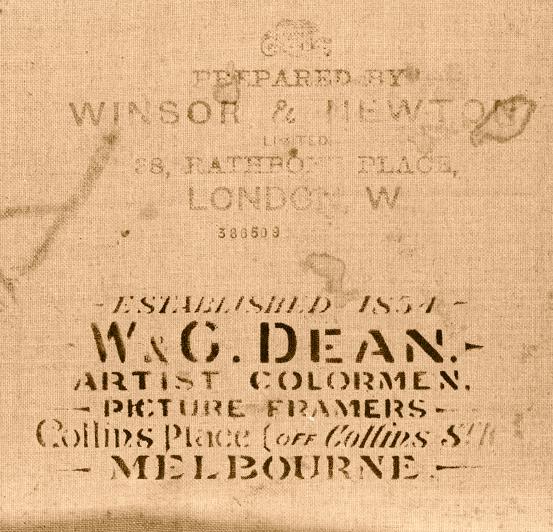 PREPARED BY
WINSOR & NEWTON
LIMITED
38, RATHBONE PLACE,
LONDON, W
386509
- ESTABLISHED 1854 -
- W & G. DEAN. -
ARTIST COLORMEN.
- PICTURE FRAMERS -
Collins Place (OFF Collins St
- MELBOURNE. -